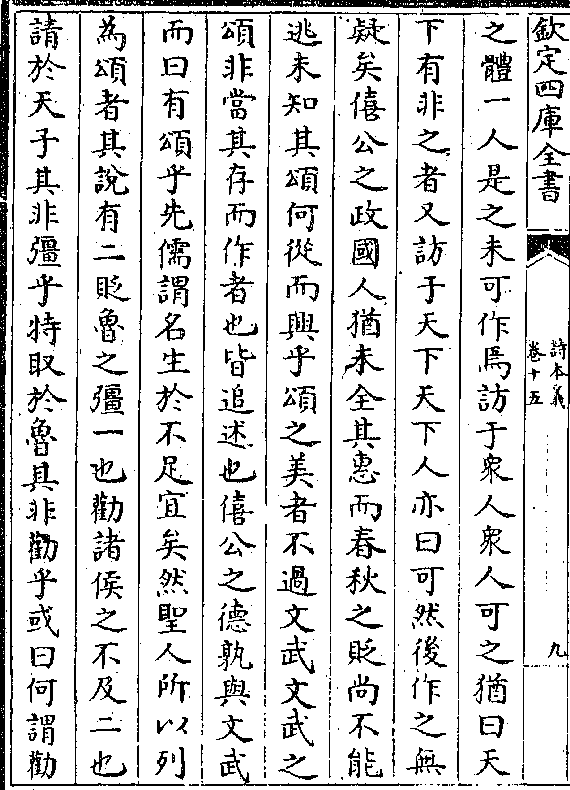 欽定四庫全書
詩本義
卷十五
九
之體一人是之未可作焉訪于衆人衆人可之猶曰天
下有非之者又訪于天下天下人亦曰可然後作之無
疑矣僖公之政國人猶未全其惠而春秋之貶尚不能
逃未知其頌何從而興乎頌之美者不過文武文武之
頌非當其存而作者也皆追述也僖公之德孰與文武
而曰有頌乎先儒謂名生於不足宜矣然聖人所以列
為頌者其說有二貶魯之彊一也勸諸侯之不及二也
請於天子其非彊乎特取於魯其非勸乎或曰何謂勸